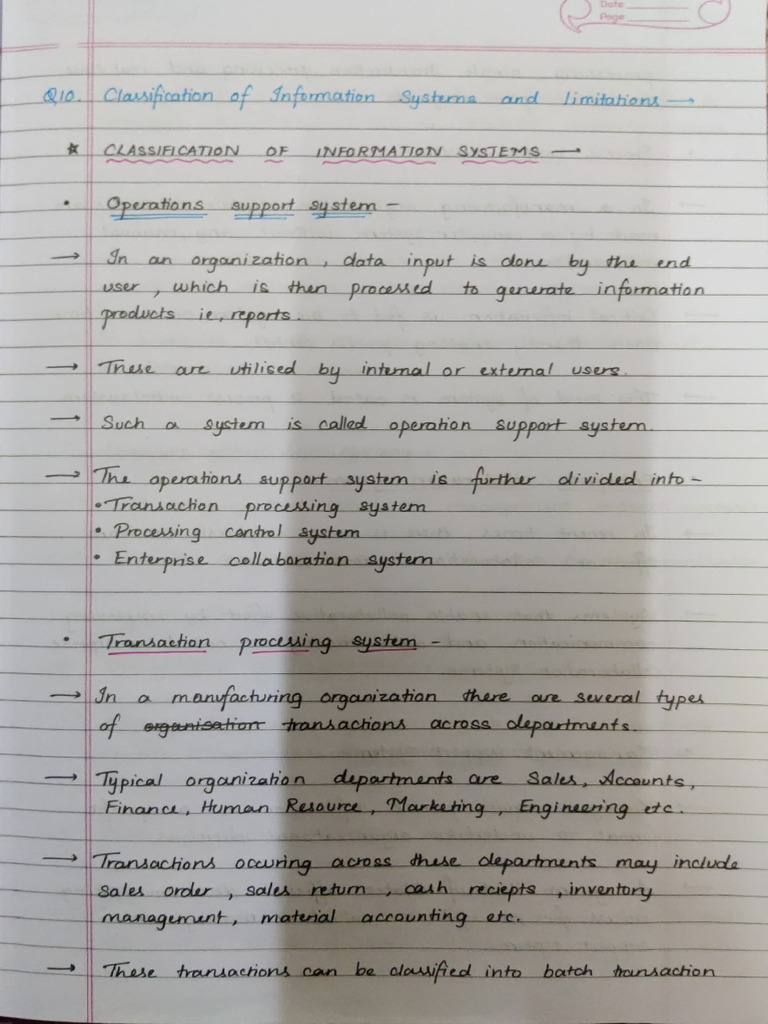 Date
Page
Q10. Classification of Information Systems and limitations →
* CLASSIFICATION OF INFORMATION SYSTEMS →
• Operations support system -
→ In an organization, data input is done by the end
user, which is then processed to generate information
products ie, reports.
→ These are utilised by internal or external users.
→ Such a system is called operation support system.
→ The operations support system is further divided into -
• Transaction processing system
• Processing control system
• Enterprise collaboration system
• Transaction processing system -
→ In a manufacturing organization there are several types
of organisation transactions across departments.
→ Typical organization departments are Sales, Accounts,
Finance, Human Resource, Marketing, Engineering etc.
→ Transactions occuring across these departments may include
sales order, sales return, cash reciepts, inventory
management, material accounting etc.
→ These transactions can be classified into batch transaction